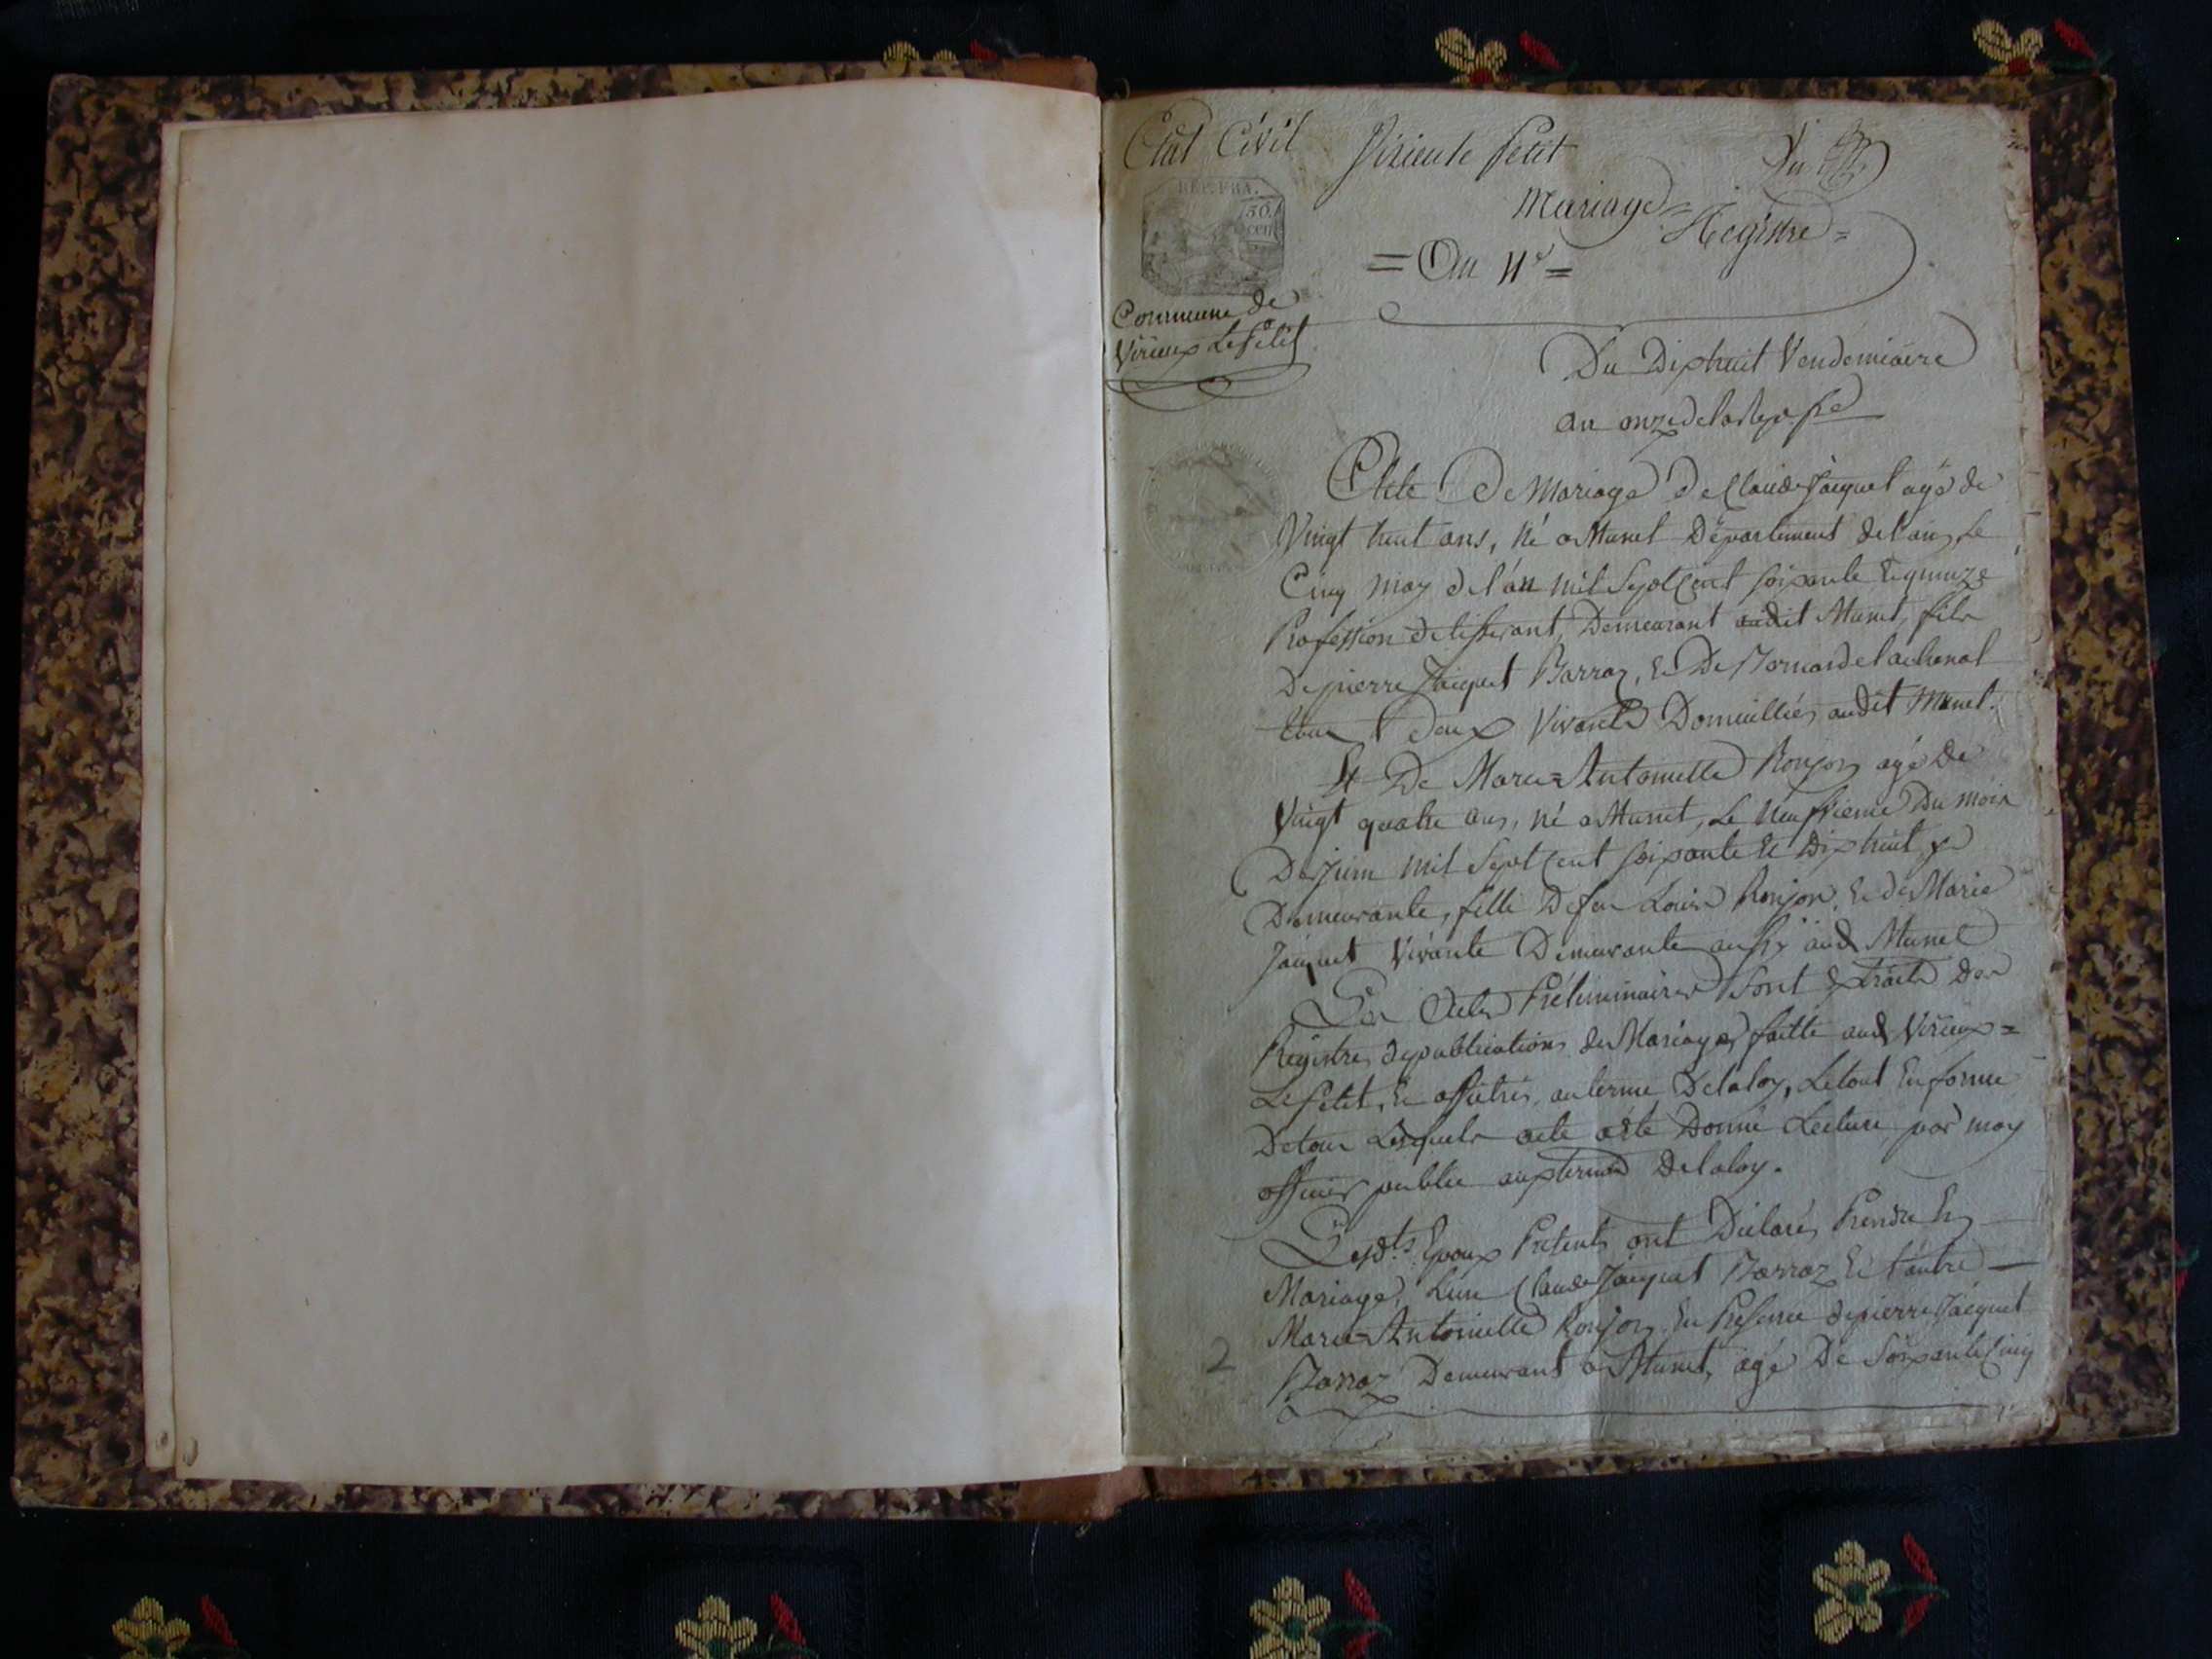 Etat Civil
Virieu le Petit
REP. FRA.
50.
cent
Mariage =
Registre =
= An 11e =
Commune de
Virieux Le Petit
Du Dixhuit Vendemiaire
an onze de la Rep. fse
Acte De Mariage De Claude Jacquet agé de
Vingt huit ans, né a Munet Département de l'ain, Le
Cinq may de l'an mil Sept Cent soixante & quinze
Profession de tisserant, Demeurant audit Munet, fils
De pierre Jacquet Barraz, &
tous deux Vivants Domicilliés audit Munet.
Et De Marie = Antoinette Ronjon agé De
Vingt quatre ans, né a Munet, Le neufvieme Du mois
De Juin mil Sept Cent soixante & Dixhuit y
Demeurante, fille De feu Louis Ronjon, & de Marie
Jacquet Vivante Demeurante aussy aud Munet
Les Actes Préliminaires Sont Extraits des
Registres de publications de Mariages faitte aud Virieux =
Le Petit, & affiches, au terme De la loy, Le tout En forme
De tous Lesquels acte a été Donné Lecture, par moy
officier public aux termes De la loy.
Lesdts Epoux Présents ont Déclarés Prendre En
Mariage, L'un Claude Jacquet Barraz & l'autre
Marie = Antoinette Ronjon, En Présence de pierre Jacquet
Barraz Demeurant a Munet, agé De Soixante Cinq
2